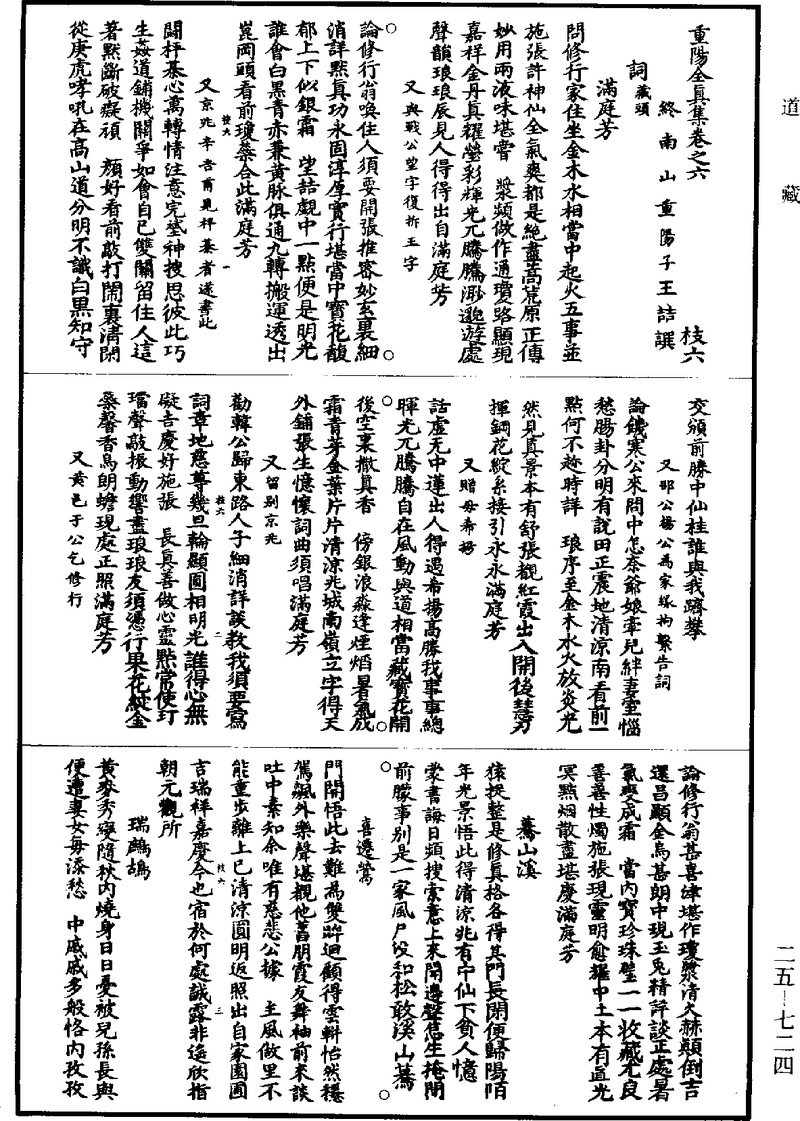 道藏
重陽全真集卷之六
枝六
終南山重陽子王嚞譔
詞 藏頭
滿庭芳
問修行家住坐金木水相當中起火五事並
施張許神仙全氣爽都是絶盡蒿荒原正傳
妙用兩液味堪嘗 漿頻做作通瓊路顯現
嘉祥金丹真耀瑩彩輝光兀騰騰邈遊處
聲韻琅琅辰見人得得出自滿庭芳
又 與戰公望字復折王字
論修行翁喚住人須要開張推察妙玄裏細
消詳點真功永固淳厚實行堪當中寶花馥
郁上下似銀霜 望喆覰中一點便是明光
誰會白黑青亦兼黄脉俱通九轉搬運透出
崑岡頭看前瓊蘂合此滿庭芳
又 京兆辛吉甫見秤棊者遂書此
枝六 一
鬬枰棊心萬轉情注意完埜神搜思彼此巧
生姦道鋪機關爭如會自已雙關留住人這
著黙斷破癡頑 顔好看前敲打閙裏清閑
從庚虎哮吼在高山道分明不識白黑知守
交頒前勝中仙桂誰與我躋攀
又 邵公楊公為家緣拘繫告詞
論饑寒公來問中怎奈爺娘牽兒絆妻室惱
愁腸卦分明有説田正震地清涼南看前一
點何不趂時詳 琅序至金木水火放炎光
然見真景本有舒張觀紅霞出入開後慧刀
揮鋼花綻糸接引永永滿庭芳
又 贈毋希揚
話虛无中運出人得遇希揚高勝我事事總
暉光兀騰騰自在風動與道相當藏寶花開
後空裏撒真香 傍銀浪淼逢煙焰暑氣成
霜青芽金葉片片清涼兆城南嶺立字得天
外鋪張生憶懷詞曲須唱滿庭芳
又 留别京兆
勸韓公歸東路人子細消詳談教我須要寫
枝六 二
詞章地慈尊幾旦輪顯圓相明光誰得心無
礙吉慶好施張 長真善做心靈點常使玎
璫聲敲振動響盡琅琅友須憑行果花綻金
蘂馨香烏朗蟾現處正照滿庭芳
又 黄邑于公乞修行
論修行翁甚喜津堪作瓊漿清大赫顛倒吉
還昌顯金烏甚朗中現玉兎精詳談正處暑
氣變成霜 當内寳珍珠璧一一收藏尤良
善善性燭施張現靈明愈耀中土本有真光
冥點烟散盡堪慶滿庭芳
驀山溪
猿捉整是修真格各得其門長閑便歸陽陌
年光景悟此得清涼兆有宁仙下貧人憶
裳書誨日頻搜索意上來開邊整焦生掩閉
前朦事别是一家風尸没和松敢溪山驀
喜遷鶯
門開悟此去難為雙辟迴顧得雲輧怡然穩
駕飄外樂聲堪覩他舊朋霞友舞袖前來談
吐中素知余唯有慈悲公據 主風做里不
能重步離上已清涼圓明返照出自家園圃
枝六 三
吉瑞祥嘉慶今也宿於何處誠露非遙欣指
朝元觀所
瑞鷓鴣
黄麥秀變隨秋内燒身日日憂被兒孫長與
便遭妻女每添愁 中戚戚多般恪内孜孜
二五—七二四